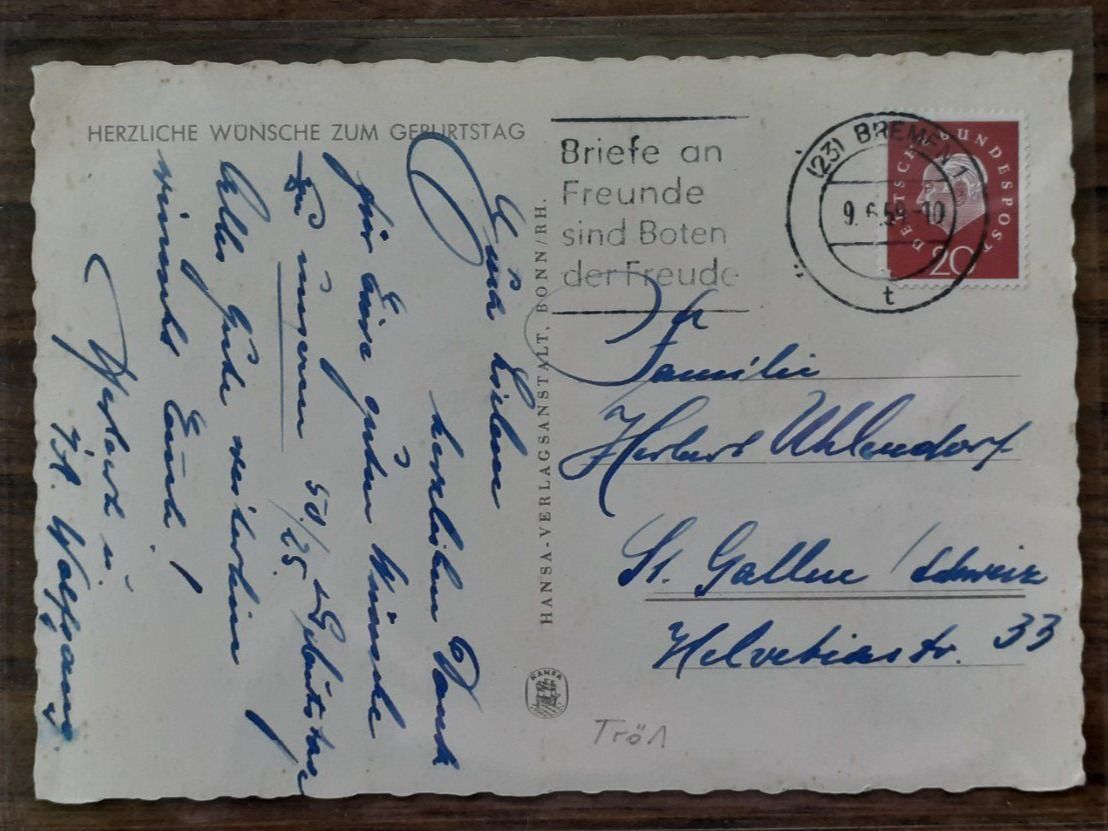 HERZLICHE WÜNSCHE ZUM GEBURTSTAG
Euch Lieben
herzlichen Dank
für Eure guten Wünsche
zu unserm 50/25. Geburtstag
Alles Gute weiterhin
wünscht Euch!
Wolfgang
HANSA-VERLAGSANSTALT, BONN/RH.
HANSA
Briefe an
Freunde
sind Boten
der Freude
(23) BREMEN 1
9.6.59-10
t
DEUTSCHE BUNDESPOST
20
Familie
Herbert Uhlendorf
St. Gallen / Schweiz
Helvetiastr. 33
Tröl